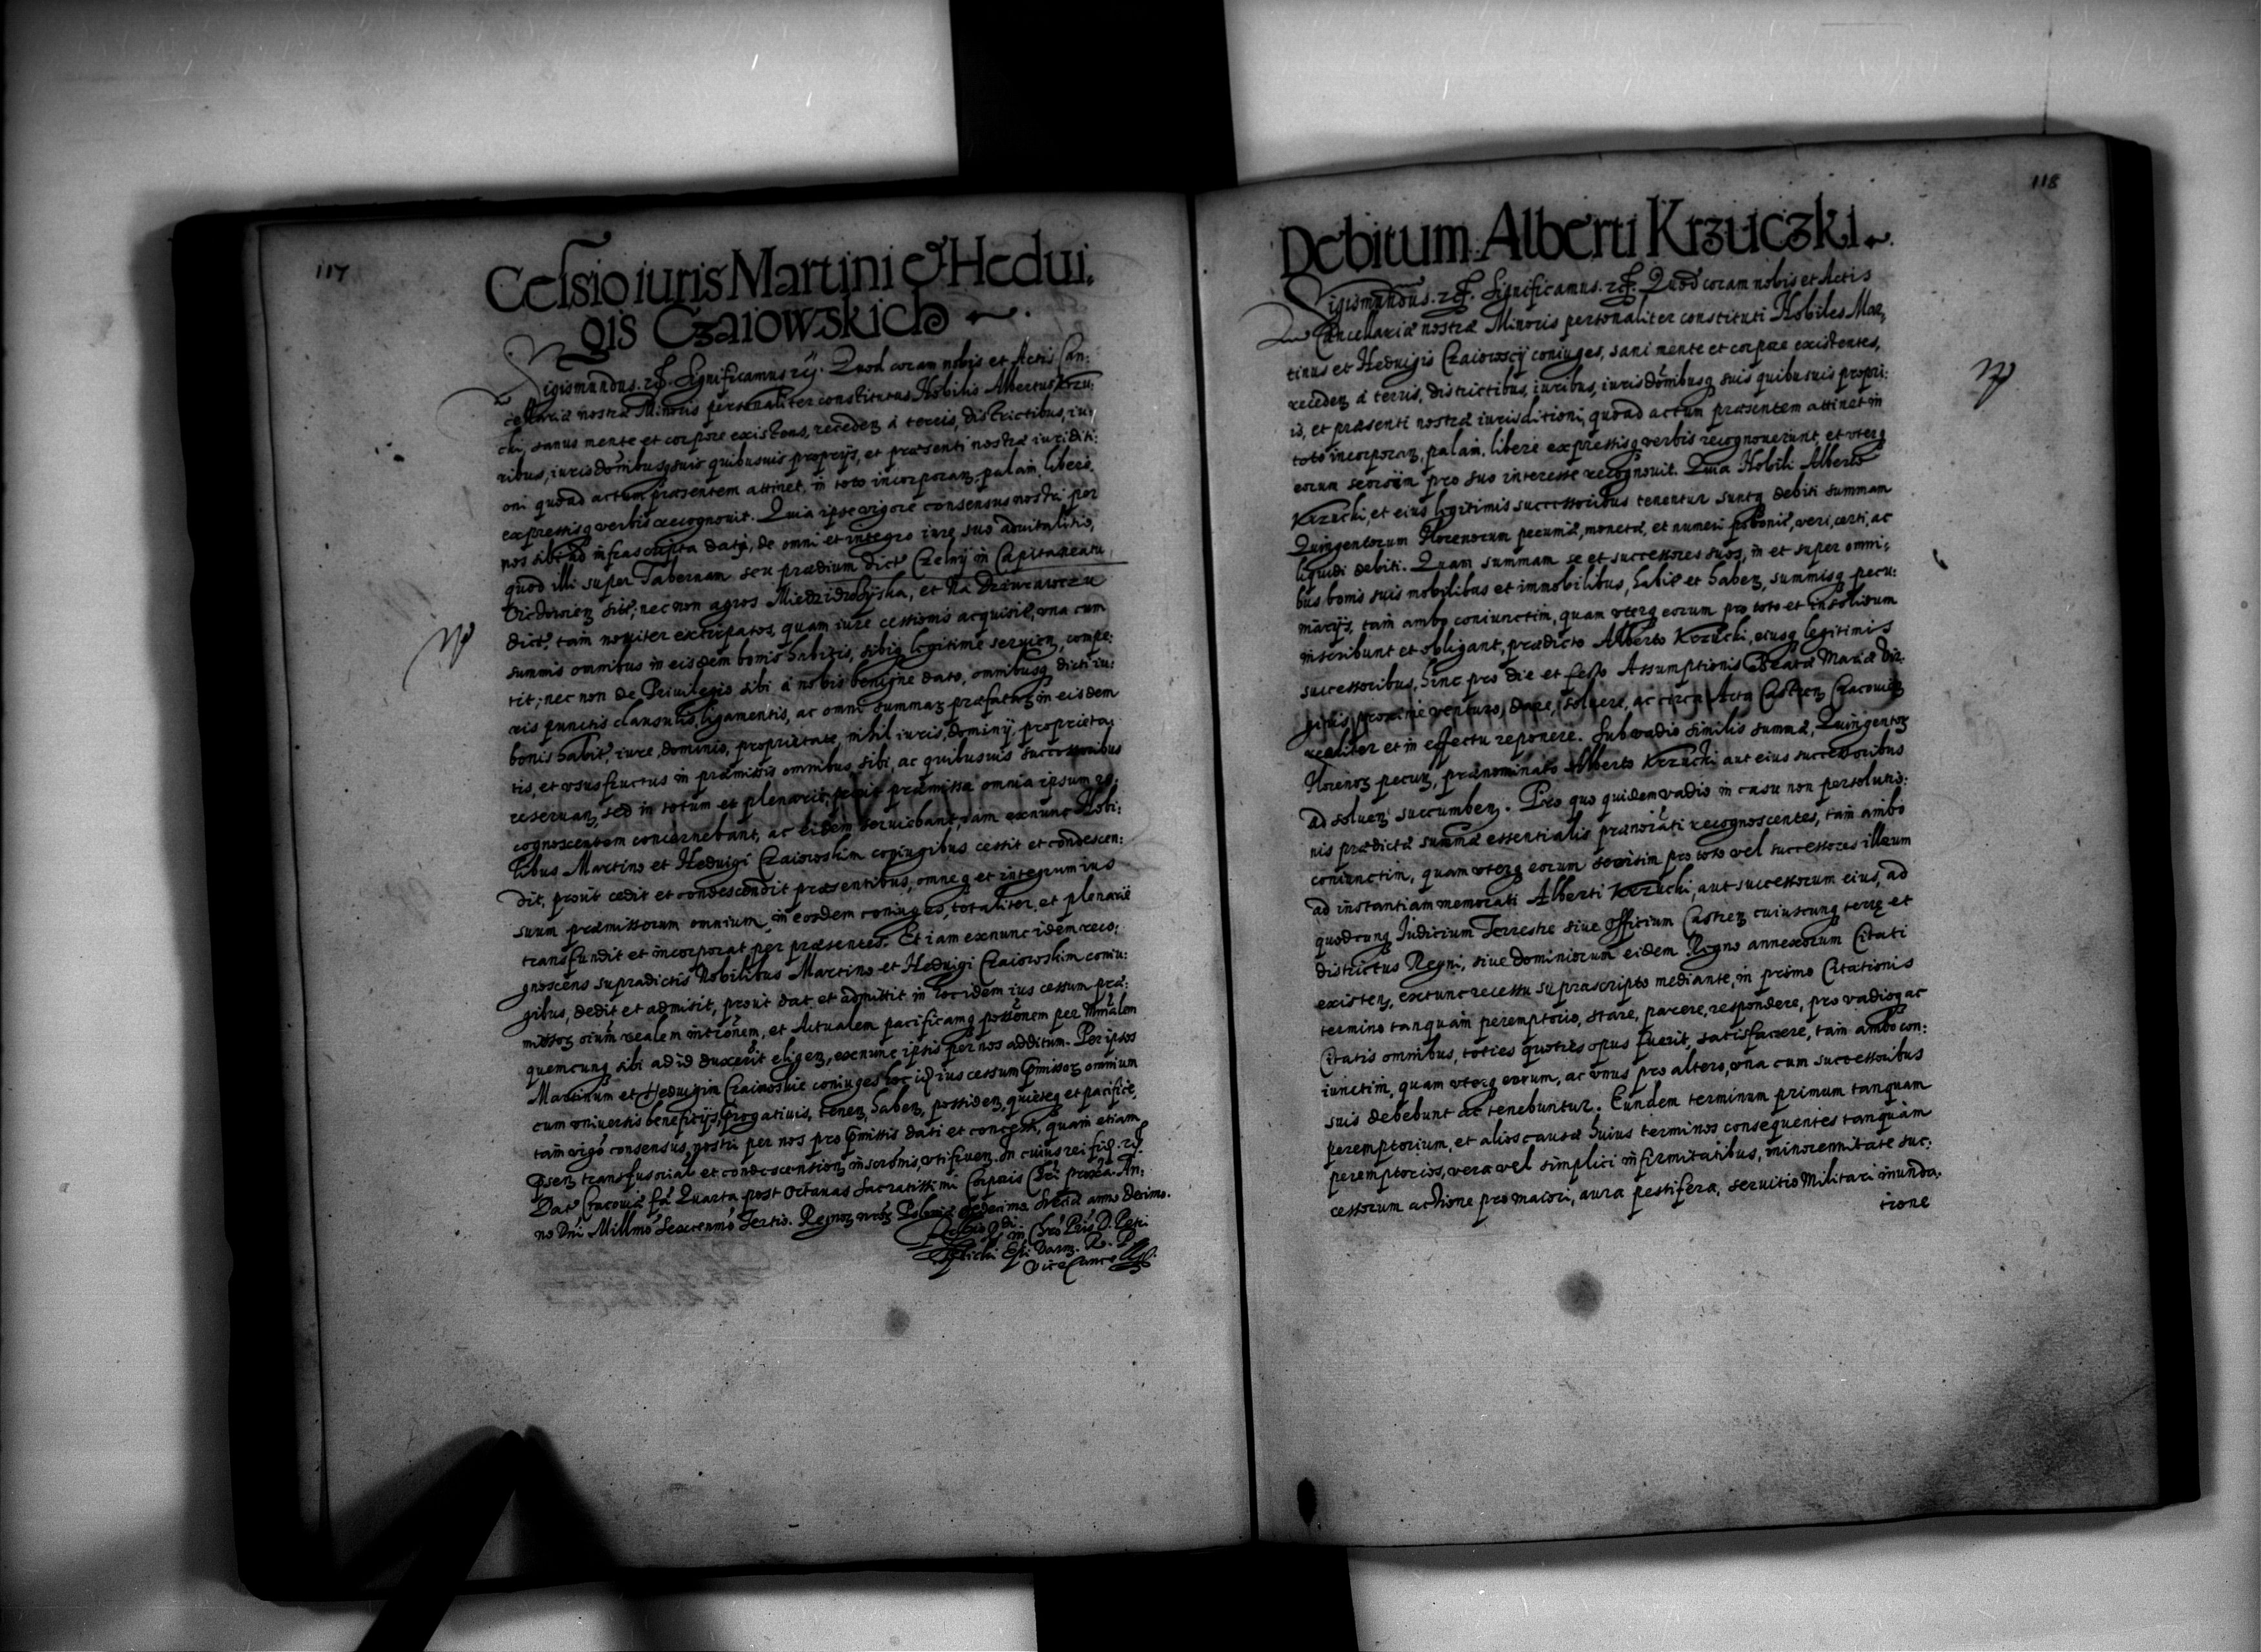 117
Cessio iuris Martini et Hedui,
gis Czaiowskich
Sigismundus. etc. Significamus etc. Quod coram nobis et Actis Can:
cellariæ nostræ Minoris personaliter constitutus Nobilis Albertus Krzu:
cki, sanus mente et corpore existens, receden a terris, districtibus, iu,
ribus, iurisdõnibusq suis quibusuis proprijs, et præsenti nostræ iurisditi:
oni quoad actum præsentem attinet, in toto incorporan, palam, libere
expressisq verbis recognouit. Quia ipse vigore consensus nostri per
nos sibi ad infrascripta dati, de omni et integro iure suo aduitalitio,
quod illi super Tabernam seu prædium dict Czelny in Capitaneatu
sit, nec non agros et Na
dict, tam nouiter extirpatos, quam iure cessionis acquisit, vna cum
summis omnibus in eisdem bonis habitis, sibiq legitime seruien, compe:
tit; nec non de Priuilegio sibi a nobis benigne dato, omnibusq dicti iu:
ris punctis clausulis, ligamentis, ac omni summaz præfataz in eisdem
bonis habit, iure, dominio, proprietate, nihil iuris, dominij, proprieta,
tis, et vsusfructus in præmissis omnibus sibi, ac quibusuis successoribus
reseruan, sed in totum et plenarie, prout præmissa omnia ipsum re:
cognoscentem concernebant, ac eidem seruiebant, iam exnunc Nobi:
libus Martino et Heduigi Czaiowskim coniugibus cessit et condescen:
dit, prout cedit et condescendit præsentibus, omneq et integrum ius
suum præmissorum omnium in eosdem coniuges, totaliter, et plenarie
transfundit et incorporat per præsentes. Et iam exnunc idem reco:
gnoscens supradictis Nobilibus Martino et Heduigi Czaiowskim coniu:
gibus, dedit et admisit, prout dat et admittit in hoc idem ius cessum præ:
missoz oium realem intronem, et Actualem pacificamq possonem per Mrialem
quemcunq sibi ad id duxerit eligen, exnunc ipsis per nos additum. Per ipsos
Martinum et Heduigim Czaiowskie coniuges hoc id ius cessum pmissoz omnium
cum vniuersis beneficijs, progatiuis, tenen, haben, possiden, quieteq et pacifice,
tam vigore consensus nostri per nos pro pmissis dati et concessi, quam etiam
psen transfusionis et condescensionis inscronis, vtifruen. In cuius rei fid. etc.
Dat Cracouiæ fa Quarta post Octauas Sacratissimi Corporis Chri proxia. An:
no Dni Millmo Sexcenmo Tertio. Regnoz nroz Poloniæ decimo Sueciæ anno decimo.
Relatio Rdi in Chro Pris D. Petri
Tylicki Epi Varm. R. P.
Vicecanc
118
Debitum Alberti Krzuczki
Sigismundus. etc. Significamus. etc. Quod coram nobis et Actis
Cancellariæ nostræ Minoris personaliter constituti Nobiles Mar,
tinus et Heduigis Czaiowscij coniuges, sani mente et corpore existentes,
receden a terris, districtibus, iuribus, iurisdõnibusq suis quibusuis propri:
is, et præsenti nostræ iurisditioni, quoad actum præsentem attinet in
toto incorporan, palam, libere expressisq verbis recognouerunt, et vterq
eorum seorsim pro suo interesse recognouit. Quia Nobili Alberto
Krzucki, et eius legitimis successoribus tenentur suntq debiti summam
Quingentorum Florenorum pecuniæ, monetæ, et numeri polonic, veri, certi, ac
liquidi debiti. Quam summam se et successores suos, in et super omni:
bus bonis suis mobilibus et immobilibus, habit et haben, summisq pecu:
niarijs, tam ambo coniunctim, quam vterq eorum pro toto et insolidum
inscribunt et obligant, prædicto Alberto Krzucki, eiusq legitimis
successoribus, hinc pro die et festo Assumptionis Beatæ Mariæ Vir:
ginis proxime venturo, dare, soluere, ac circa Acta Castren Cracouien
realiter et in effectu reponere. Sub vadio similis summæ, Quingentoz
Florenoz pecun, prænominato Alberto Krzucki aut eius successoribus
ad soluen succumben. Pro quo quidem vadio in casu non persolutio:
nis prædictæ summæ essentialis prænoiati recognoscentes, tam ambo
coniunctim, quam vterq eorum seorsim pro toto vel successores illorum
ad instantiam memorati Alberti Krzucki, aut successorum eius, ad
quodcunq Iudicium Terrestre siue Officium Castren cuiuscunq terre et
districtus Regni, siue dominiorum eidem Regno annexorum Citati
existen, extunc recessu suprascripto mediante, in primo Citationis
termino tanquam peremptorio, stare, parere, respondere, pro vadioq ac
Citatis omnibus, toties quoties opus fuerit, satisfacere, tam ambo con:
iunctim, quam vterq eorum, ac vnus pro altero, vna cum successoribus
suis debebunt ac tenebuntur. Eundem terminum primum tanquam
peremptorium, et alios causæ huius terminos consequentes tanquam
peremptorios, vera vel simplici infirmitatibus, minorennitate suc:
cessorum actione pro maiori, aura pestifera, seruitio Militari inunda,
tione